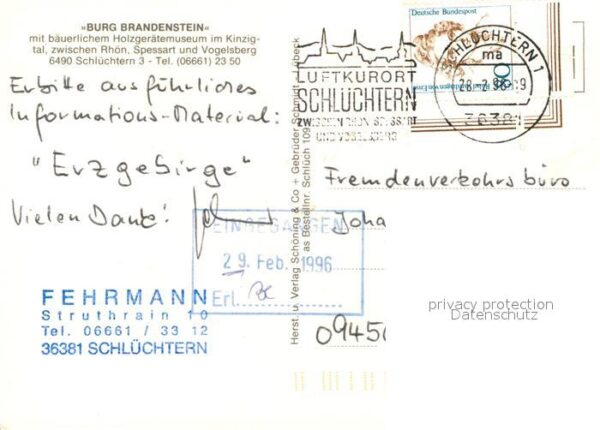 »BURG BRANDENSTEIN«
mit bäuerlichem Holzgerätemuseum im Kinzig-
tal, zwischen Rhön, Spessart und Vogelsberg
6490 Schlüchtern 3 - Tel. (06661) 23 50
Erbitte ausführliches
Informations-Material:
"Erzgebirge"
Vielen Dank!
EINGEGANGEN
29. Feb. 1996
Erl.
FEHRMANN
Struthrain 10
Tel. 06661 / 33 12
36381 SCHLÜCHTERN
Herst. u. Verlag Schöning & Co + Gebrüder Schmidt - Lübeck
as Bestellnr. Schlüch 109
Deutsche Bundespost
LUFTKURORT
SCHLÜCHTERN
ZWISCHEN RHÖN, SPESSART
UND VOGELSBERG
SCHLÜCHTERN 1
ma
28.-2.96-19
36381
Fremdenverkehrsbüro
Joha
0945
privacy protection
Datenschutz